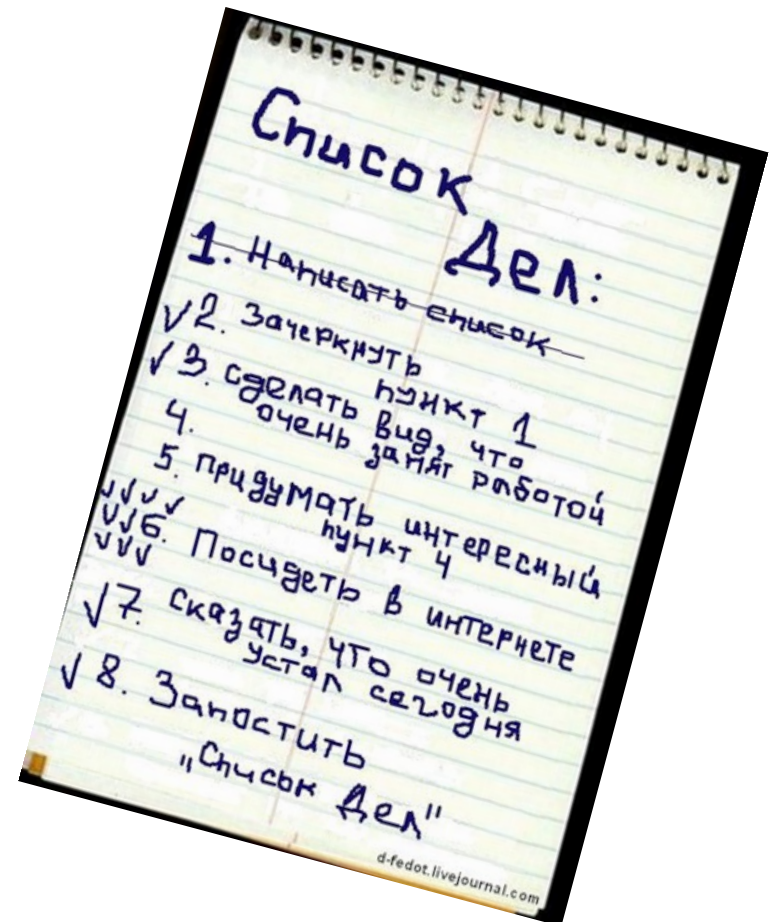 Список
Дел:
1. Написать список
2. Зачеркнуть
пункт 1
3. Сделать вид, что
очень занят работой
4.
5. Придумать интересный
пункт 4
6. Посидеть в интернете
7. Сказать, что очень
устал сегодня
8. Запостить
„Список Дел"
d-fedot.livejournal.com